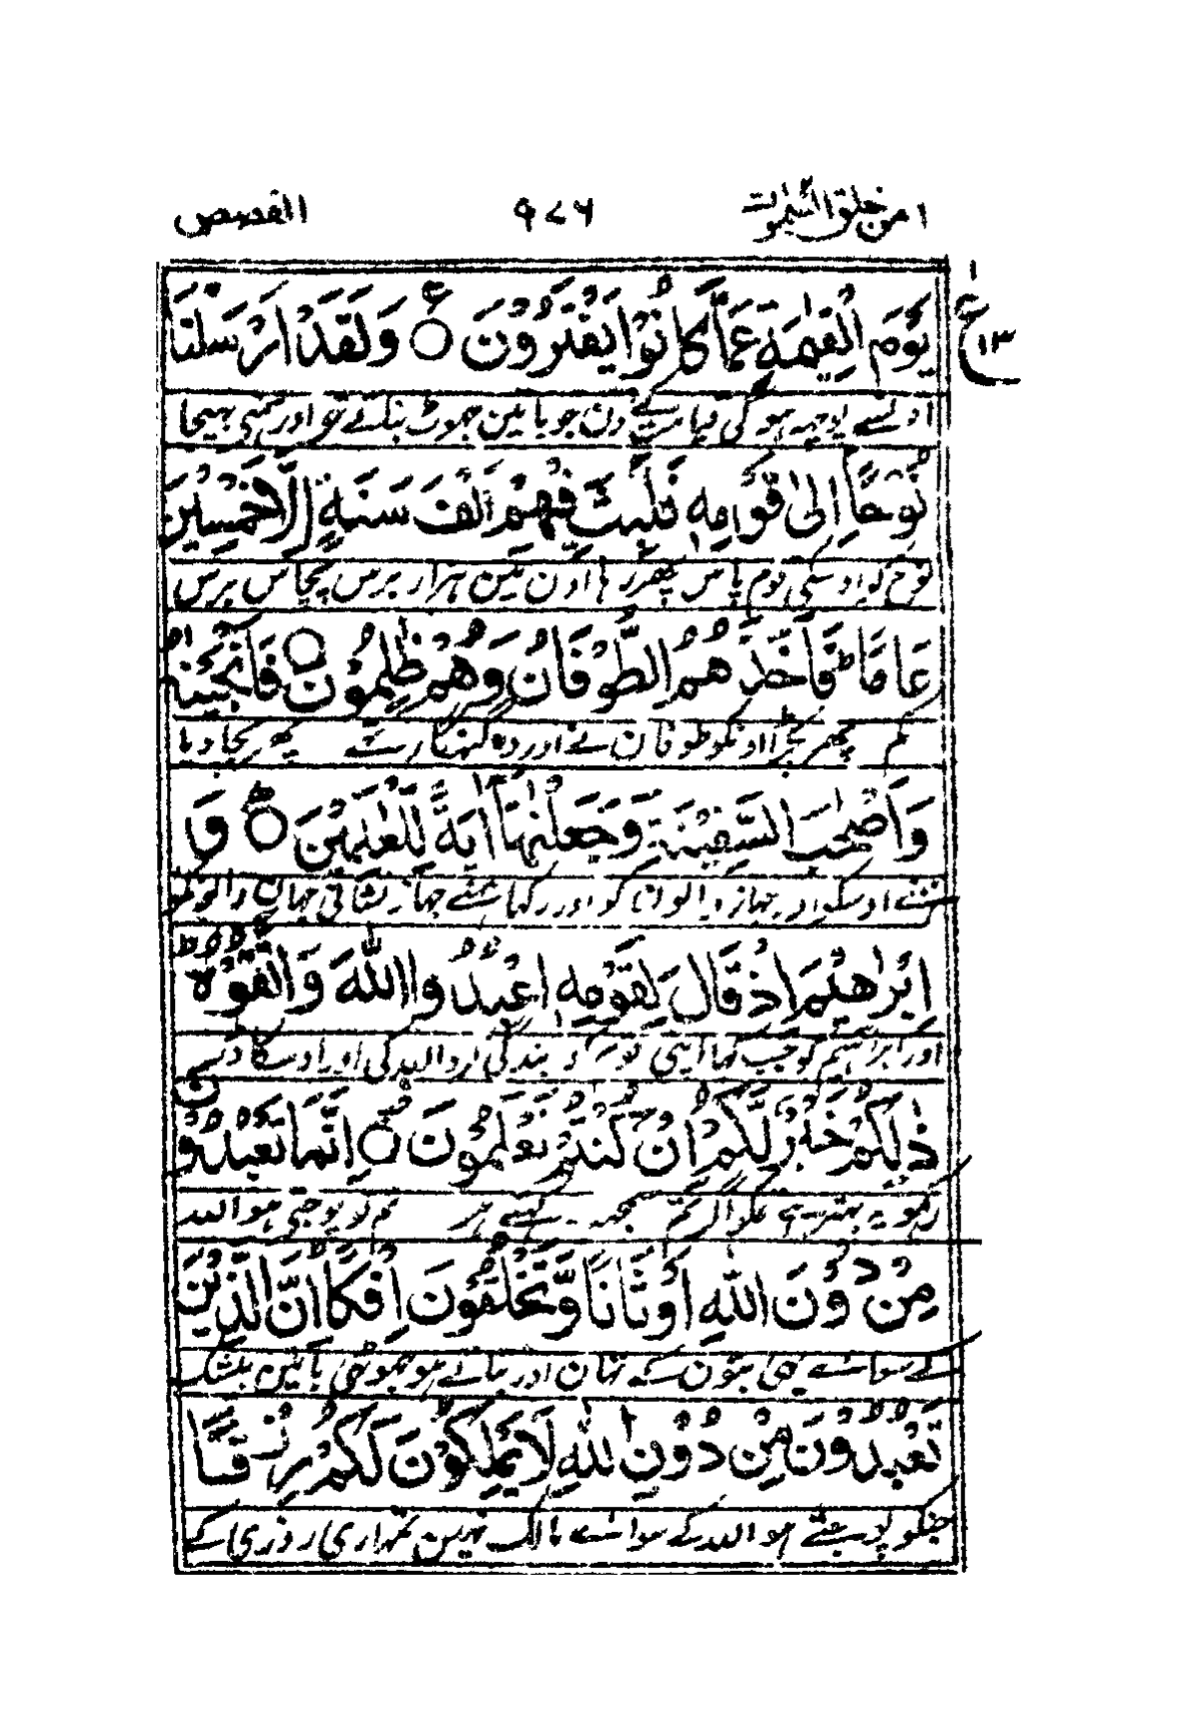 امن خلق السمٰوٰت ۹۷۶ القصص
ع ۱۳
يَوْمَ الْقِيٰمَةِ عَمَّا كَانُوْا يَفْتَرُوْنَ ○ وَلَقَدْ اَرْسَلْنَا
اونسے پوچہہ ہوگی قیامت کے دن جو باتین جھوٹ بناتے تھے اور ہمنے بھیجا
نُوْحًا اِلٰى قَوْمِهٖ فَلَبِثَ فِيْهِمْ اَلْفَ سَنَةٍ اِلَّا خَمْسِيْنَ
نوح کو اوسکی قوم پاس پھر رہا اون مین ہزار برس پچاس برس
عَامًا ؕ فَاَخَذَهُمُ الطُّوْفَانُ وَهُمْ ظٰلِمُوْنَ ○ فَاَنْجَيْنٰهُ
کم پھر پکڑا اونکو طوفان نے اور وہ گنہگار تھے پھر بچا دیا
وَاَصْحٰبَ السَّفِيْنَةِ وَجَعَلْنٰهَا اٰيَةً لِّلْعٰلَمِيْنَ ○ وَ
ہمنے اوسکو اور جہاز والون کو اور رکھا ہمنے جہاز نشانی جہان والونکو
اِبْرٰهِيْمَ اِذْ قَالَ لِقَوْمِهِ اعْبُدُوا اللّٰهَ وَاتَّقُوْهُ ؕ
اور ابراہیم کو جب کہا اپنی قوم کو بندگی کرو اللہ کی اور اوسکا ڈر
ذٰلِكُمْ خَيْرٌ لَّكُمْ اِنْ كُنْتُمْ تَعْلَمُوْنَ ○ اِنَّمَا تَعْبُدُوْنَ
رکھو یہ بہتر ہے تمکو اگر تم سمجہہ رکھتے ہو تم تو پوجتی ہو اللہ
مِنْ دُوْنِ اللّٰهِ اَوْثَانًا وَّتَخْلُقُوْنَ اِفْكًا ؕ اِنَّ الَّذِيْنَ
کے سوائے یہی بتون کے تہان اور بناتے ہو جھوٹی باتین بیشک
تَعْبُدُوْنَ مِنْ دُوْنِ اللّٰهِ لَا يَمْلِكُوْنَ لَكُمْ رِزْقًا
جنکو پوجتے ہو اللہ کے سوائے مالک نہین تمہاری روزی کے